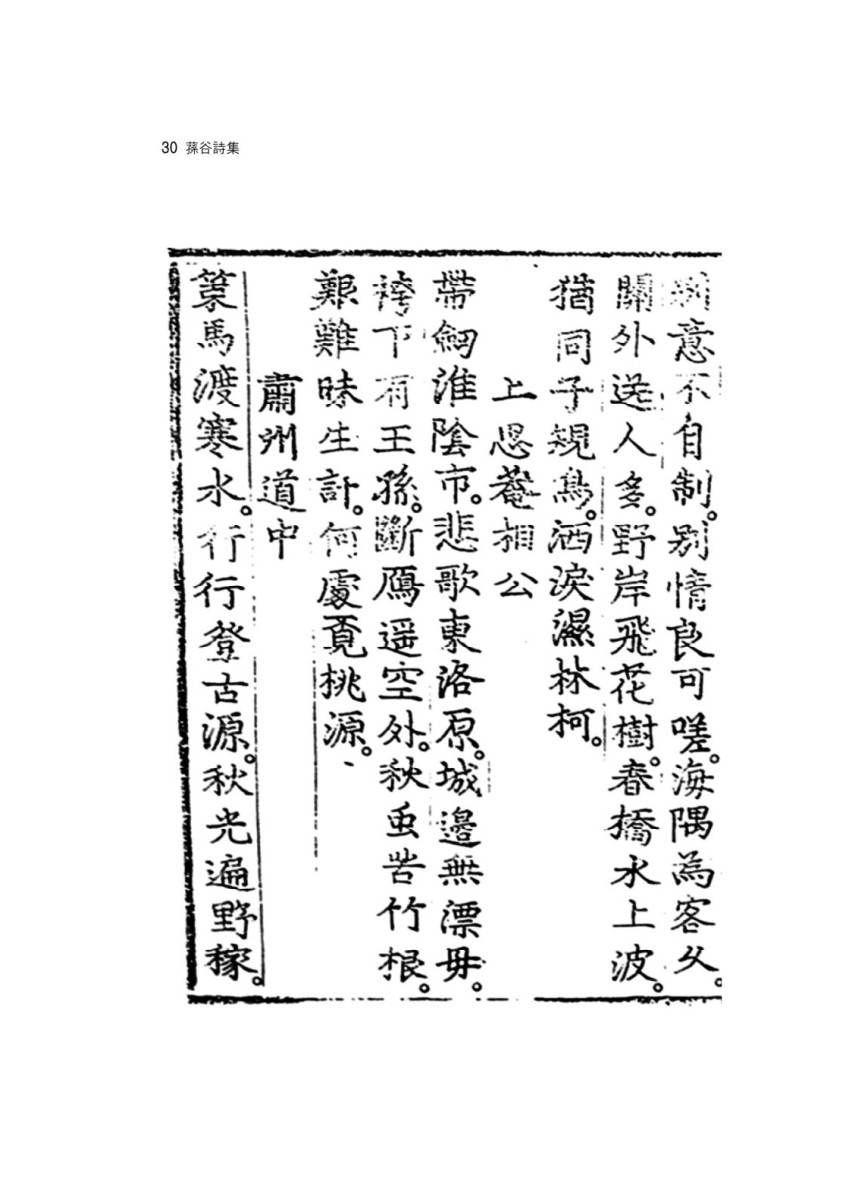 30 蓀谷詩集
意不自制。别情良可嗟。海隅為客久。
關外送人多。野岸飛花樹。春橋水上波。
猶同子規鳥。洒淚濕林柯。
上思菴相公
帶劒淮陰市。悲歌東洛原。城邊無漂毋。
袴下有王孫。斷鴈遥空外。秋虫苦竹根。
艱難昧生計。何處覓桃源。
肅州道中
策馬渡寒水。行行登古源。秋光遍野稼。